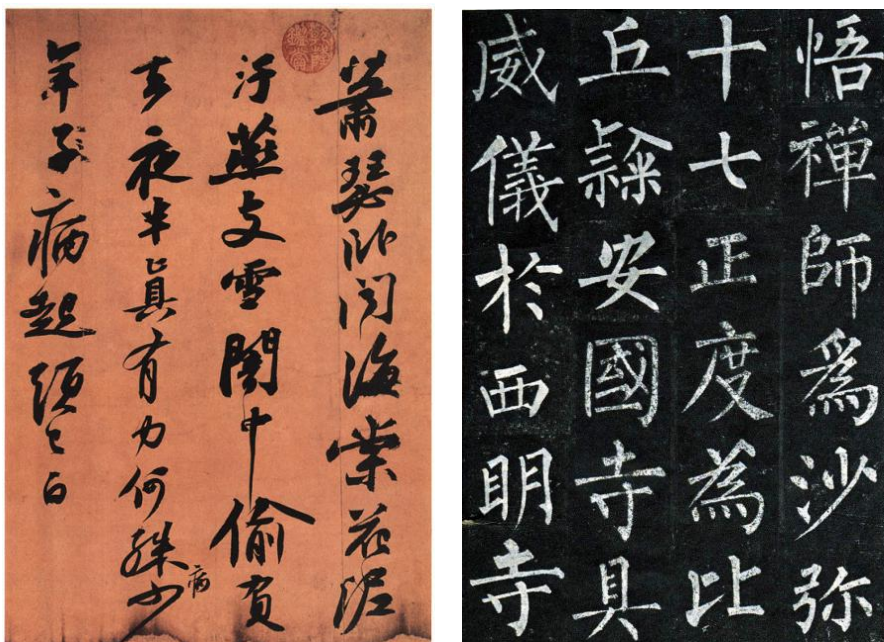 蕭瑟卧聞海棠花泥
汙燕支雪闇中偷負
去夜半真有力何殊病少
年子病起頭已白
悟禪師爲沙弥
十七正度為比
丘隸安國寺具
威儀於西明寺